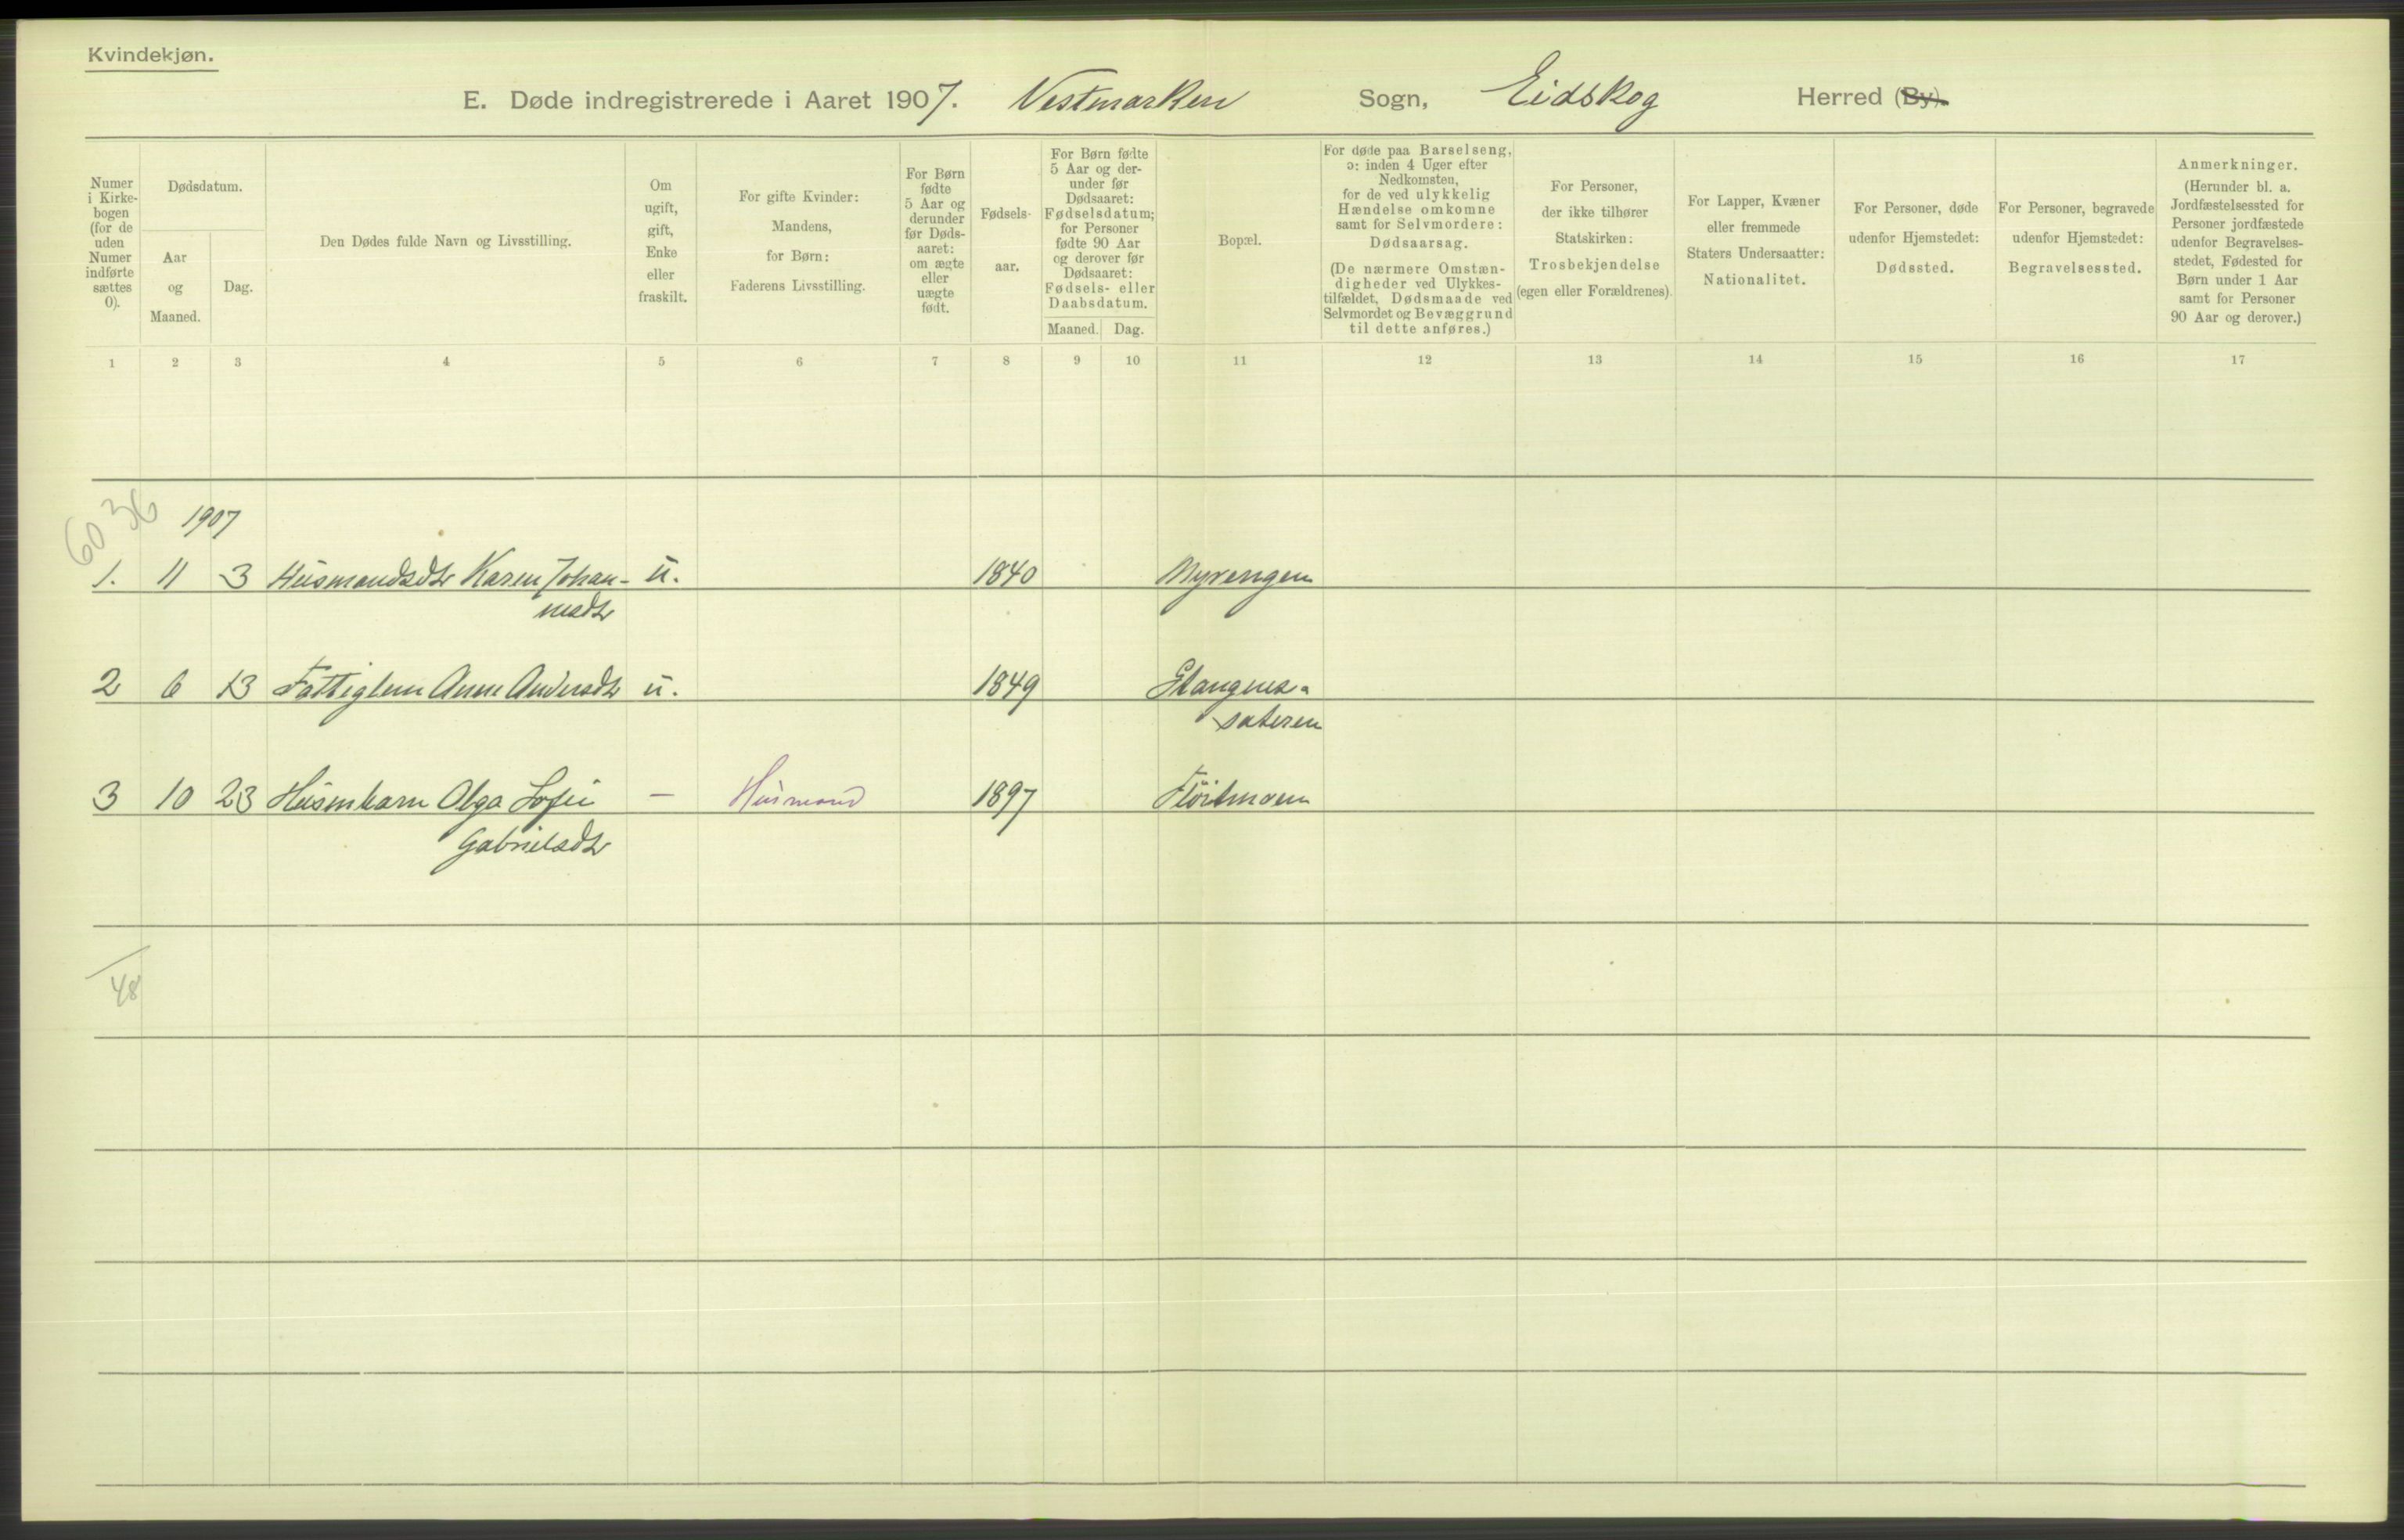 Kvindekjøn.
E. Døde indregistrerede i Aaret 1907. Vestmarken Sogn, Eidskog Herred (By).
Numer
i Kirke-
bogen
(for de
uden
Numer
indførte
sættes
0).
Dødsdatum.
Aar
og
Maaned.
Dag.
Den Dødes fulde Navn og Livsstilling.
Om
ugift,
gift,
Enke
eller
fraskilt.
For gifte Kvinder:
Mandens,
for Børn:
Faderens Livsstilling.
For Børn
fødte
5 Aar og
derunder
før Døds-
aaret:
om ægte
eller
uægte
født.
Fødsels-
aar.
For Børn fødte
5 Aar og der-
under før
Dødsaaret:
Fødselsdatum;
for Personer
fødte 90 Aar
og derover før
Dødsaaret:
Fødsels- eller
Daabsdatum.
Maaned. Dag.
Bopæl.
For døde paa Barselseng,
ɔ: inden 4 Uger efter
Nedkomsten,
for de ved ulykkelig
Hændelse omkomne
samt for Selvmordere:
Dødsaarsag.
(De nærmere Omstæn-
digheder ved Ulykkes-
tilfældet, Dødsmaade ved
Selvmordet og Bevæggrund
til dette anføres.)
For Personer,
der ikke tilhører
Statskirken:
Trosbekjendelse
(egen eller Forældrenes).
For Lapper, Kvæner
eller fremmede
Staters Undersaatter:
Nationalitet.
For Personer, døde
udenfor Hjemstedet:
Dødssted.
For Personer, begravede
udenfor Hjemstedet:
Begravelsessted.
Anmerkninger.
(Herunder bl. a.
Jordfæstelsessted for
Personer jordfæstede
udenfor Begravelses-
stedet, Fødested for
Børn under 1 Aar
samt for Personer
90 Aar og derover.)
1 2 3 4 5 6 7 8 9 10 11 12 13 14 15 16 17
60 36
1907
1. 11 3 Husmandsdtr Karen Johan- u. 1840 Myrengen
nesdtr
2 6 13 Fattiglem Anne Andersdtr u. 1849
sæteren
3 10 23 Husmbarn Olga Sofie — Husmand 1897
Gabrielsdtr
48